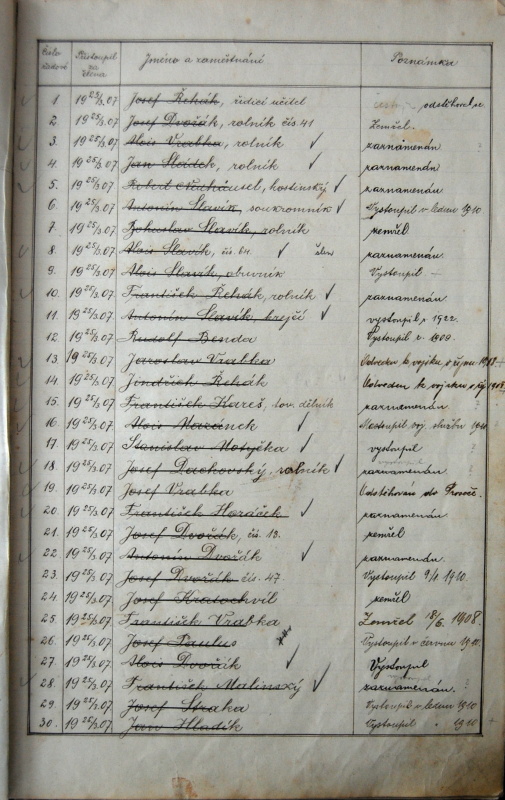 Číslo řadové Přistoupil za člena Jméno a zaměstnání Poznámka
1 19 25/3. 07 Josef Řehák, řídící učitel odstěhoval se
2. 19 25/3. 07 Josef Dvořák, rolník čís. 41 Zemřel.
3. 19 25/3. 07 Alois Vrabka, rolník ✓ zaznamenán
4. 19 25/3. 07 Jan Sládek, rolník ✓ zaznamenán
5. 19 25/3. 07 Robert hostinský ✓ zaznamenán
6. 19 25/3. 07 Antonín Slavík, soukromník ✓ Vystoupil v lednu 1910
7. 19 25/3. 07 Bohuslav Slavík, rolník zemřel
8. 19 25/3. 07 Alois Slavík, čís. ✓ člen zaznamenán.
9. 19 25/3. 07 Alois Slavík, obuvník Vystoupil
10. 19 25/3. 07 František Řehák, rolník ✓ zaznamenán
11. 19 25/3. 07 Antonín Slavík, krejčí ✓ vystoupil r. 1922.
12. 19 25/3. 07 Rudolf Benda Vystoupil r. 1909.
13. 19 25/3. 07 Jaroslav Vrabka Odveden k vojsku v říjnu 1908
14. 19 25/3. 07 Jindřich Řehák Odveden k vojsku v 1908.
15. 19 25/3. 07 František Kareš, tov. dělník zaznamenán
16. 19 25/3. 07 Alois ✓ Nastoupil voj. službu 1910
17. 19 25/3. 07 Stanislav Motyčka ✓ vystoupil
18. 19 25/3. 07 Josef Dachovský, rolník ✓ zaznamenán
19. 19 25/3. 07 Josef Vrabka Odstěhován do Proseče.
20. 19 25/3. 07 František Horáček ✓ zaznamenán
21. 19 25/3. 07 Josef Dvořák, čís. 13. zemřel
22. 19 25/3. 07 Antonín Dvořák ✓ zaznamenán.
23. 19 25/3. 07 Josef Dvořák čís. 47 Vystoupil 9/1 1910.
24. 19 25/3. 07 Josef Kratochvíl zemřel
25. 19 25/3. 07 František Vrabka Zemřel 18/6. 1908.
26. 19 25/3. 07 Josef Paulus Vystoupil v června 1910.
27. 19 25/3. 07 Alois Dvořák ✓ Vystoupil
28. 19 25/3. 07 František Malinský ✓ zaznamenán.
29. 19 25/3. 07 Josef Straka Vystoupil v lednu 1910
30. 19 25/3. 07 Jan Hladík Vystoupil " 1910